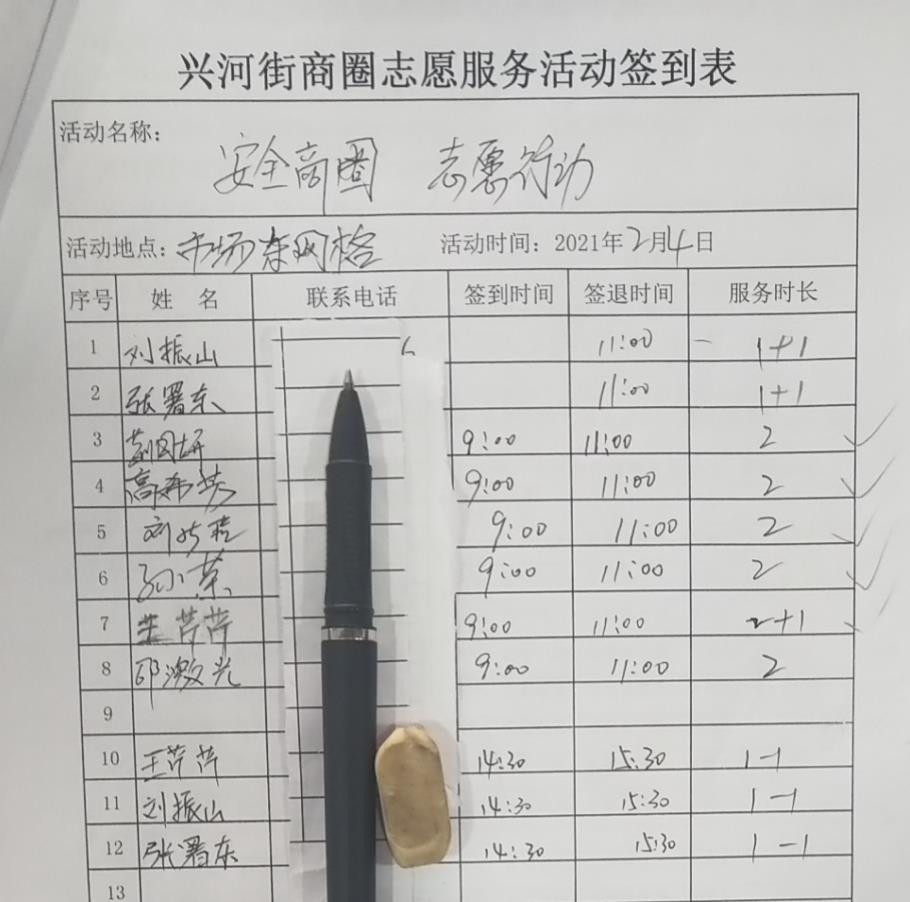 兴河街商圈志愿服务活动签到表
活动名称: 安全商圈 志愿行动
活动地点: 市场东网格 活动时间: 2021年2月4日
序号 姓 名 联系电话 签到时间 签退时间 服务时长
1 刘振山 11:00 1+1
2 张署东 11:00 1+1
3 9:00 11:00 2
4 高希芳 9:00 11:00 2
5 刘 9:00 11:00 2
6 孙小荣 9:00 11:00 2
7 王芹芹 9:00 11:00 2+1
8 邵激光 9:00 11:00 2
9
10 王芹芹 14:30 15:30 1-1
11 刘振山 14:30 15:30 1-1
12 张署东 14:30 15:30 1-1
13